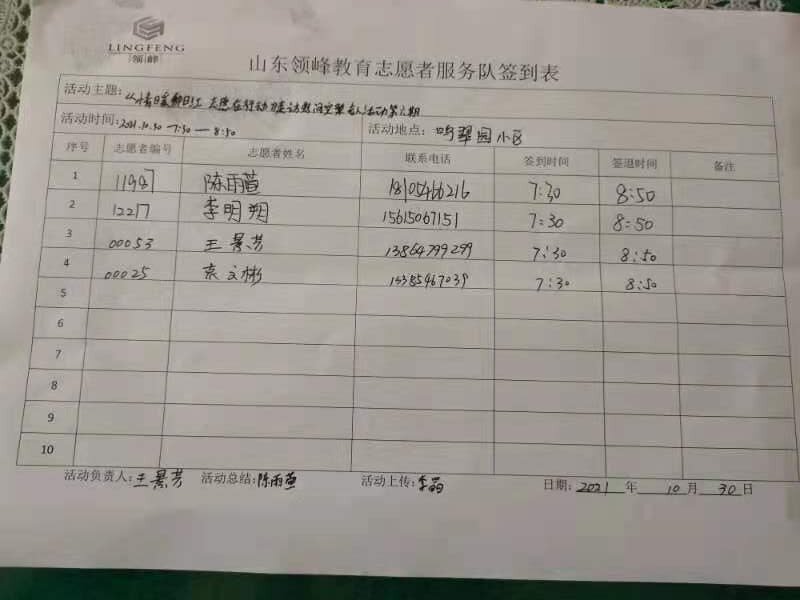 LINGFENG
领峰
山东领峰教育志愿者服务队签到表
活动主题: 情暖夕阳红 志愿在行动 走访慰问空巢老人活动第六期
活动时间:2021.10.30 7:30—8:50 活动地点: 鸣翠园小区
序号 志愿者编号 志愿者姓名 联系电话 签到时间 签退时间 备注
1 11947 陈雨萱 18105466216 7:30 8:50
2 12217 李明朔 15615067151 7:30 8:50
3 00053 王景芳 13864799299 7:30 8:50
4 00025 袁文彬 7:30 8:50
5
6
7
8
9
10
活动负责人:王景芳 活动总结:陈雨萱 活动上传:李晶 日期: 2021 年 10 月 30 日